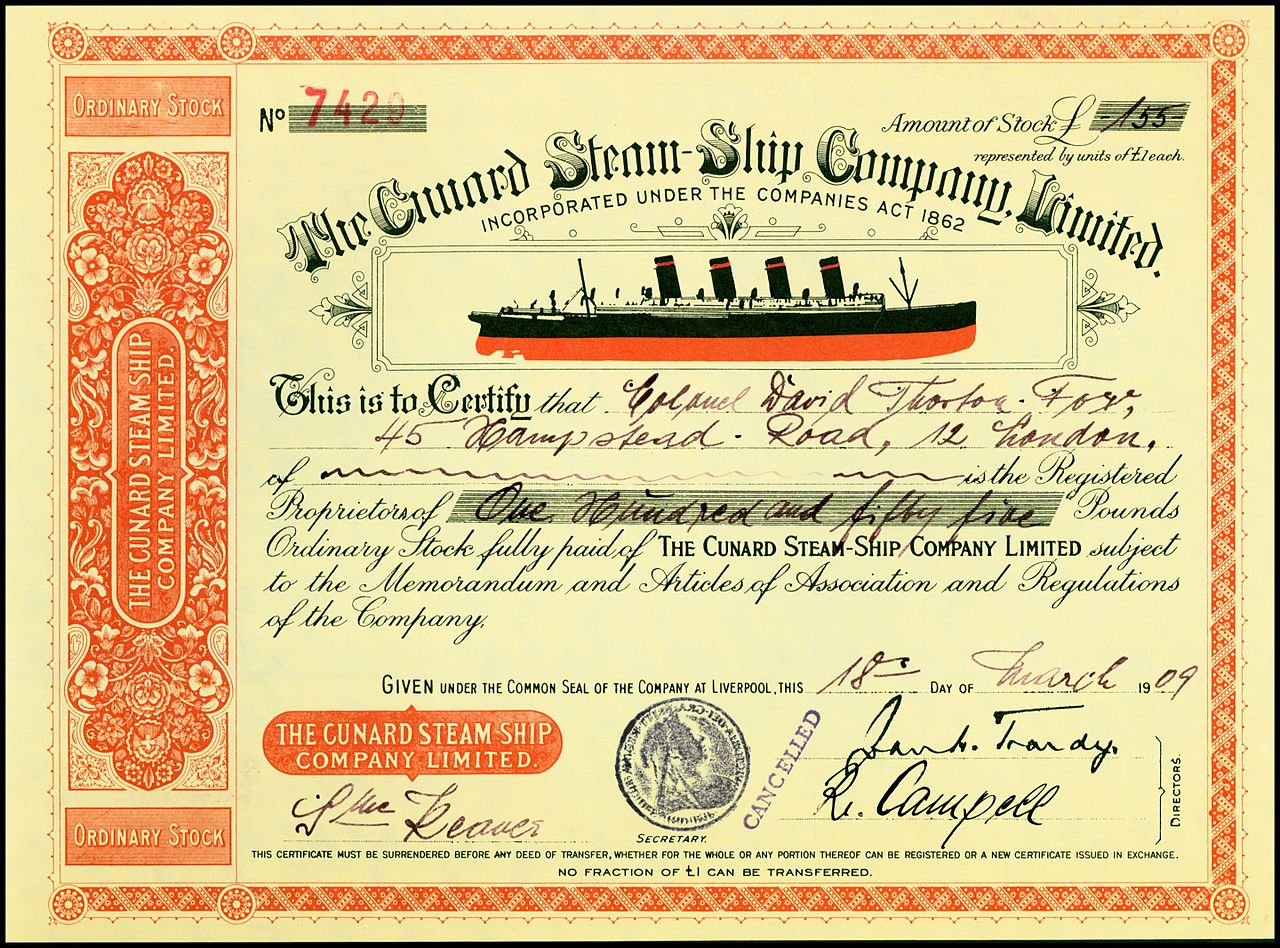 ORDINARY STOCK
THE CUNARD STEAM SHIP
COMPANY LIMITED.
ORDINARY STOCK
No 7429
Amount of Stock £ 155
represented by units of £1 each.
The Cunard Steam-Ship Company, Limited.
INCORPORATED UNDER THE COMPANIES ACT 1862
This is to Certify that Colonel David Thorton
45 Hampstead - Road, 12 London,
of is the Registered
Proprietor of One Hundred and fifty five Pounds
Ordinary Stock fully paid of THE CUNARD STEAM-SHIP COMPANY LIMITED subject
to the Memorandum and Articles of Association and Regulations
of the Company.
GIVEN UNDER THE COMMON SEAL OF THE COMPANY AT LIVERPOOL, THIS 18 DAY OF March 1909
THE CUNARD STEAM SHIP
COMPANY LIMITED.
CANCELLED
R. Campell
DIRECTORS.
SECRETARY.
THIS CERTIFICATE MUST BE SURRENDERED BEFORE ANY DEED OF TRANSFER, WHETHER FOR THE WHOLE OR ANY PORTION THEREOF CAN BE REGISTERED OR A NEW CERTIFICATE ISSUED IN EXCHANGE.
NO FRACTION OF £1 CAN BE TRANSFERRED.